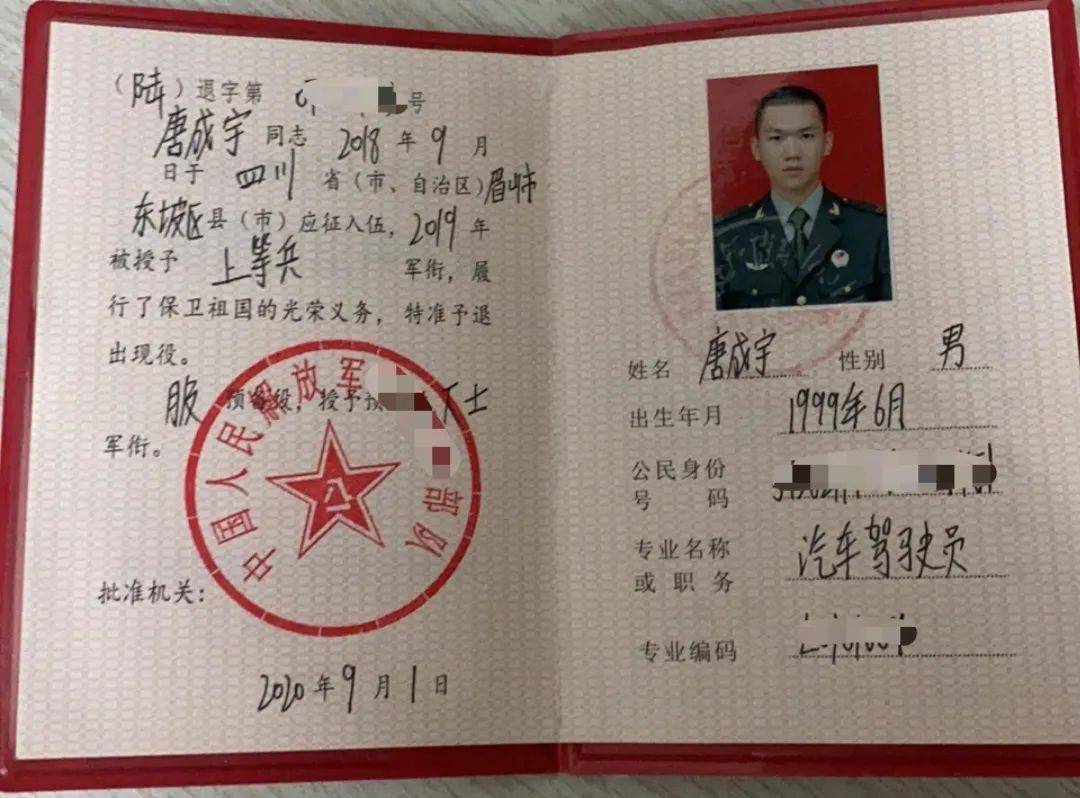 （陆）退字第 号
唐成宇 同志 2018 年 9 月
日于 四川 省（市、自治区）眉山市
东坡区 县（市）应征入伍，2019 年
被授予 上等兵 军衔，履
行了保卫祖国的光荣义务，特准予退
出现役。
服 预备役，授予预 下士
军衔。
中国人民解放军 部队
八一
批准机关：
2020 年 9 月 1 日
姓名 唐成宇 性别 男
出生年月 1999年6月
公民身份
号 码
专业名称 汽车驾驶员
或 职 务
专业编码